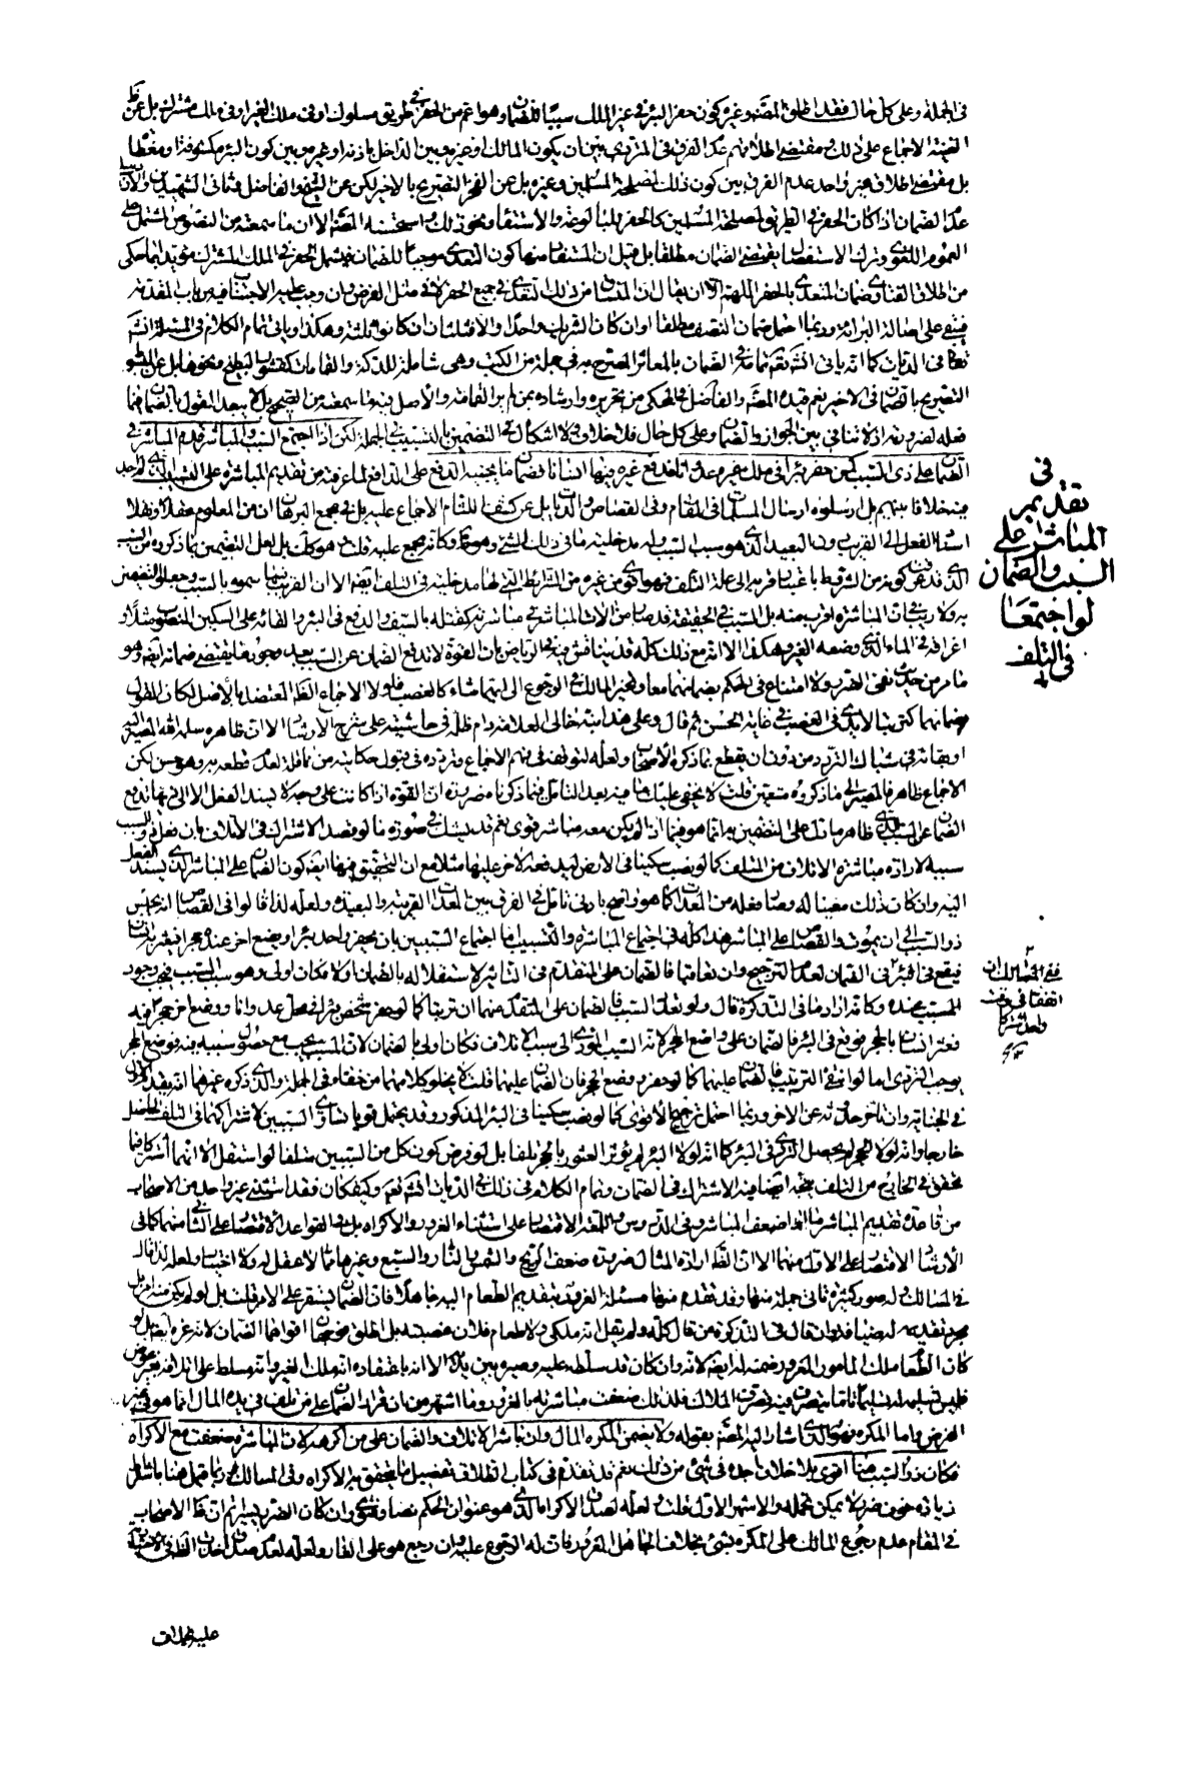 في الجملة وعلى كل حال فقد اطلق المصنف وغيره كون حفر البئر في غير الملك سببا للضمان وهو اعم من الحفر في طريق مسلوك او في ملك الغير او في ملك مشترك بل عن ظ
الغنية الاجماع على ذلك ومقتضى اطلاقهم عدم الفرق في المتردي بين ان يكون المالك او غيره وبين الداخل باذنه او غيره وبين كون البئر مكشوفة او مغطاة
بل مقتضى اطلاق غير واحد عدم الفرق بين كون ذلك لمصلحة المسلمين وغيره بل عن الفخر التصريح بالاخير لكن عن الشيخ والفاضل وثاني الشهيدين
عدم الضمان اذا كان الحفر في الطريق لمصلحة المسلمين كالحفر للبالوعة والاستقاء ونحو ذلك واستحسنه المصنف الا ان ما سمعته من النصوص المشتمل على
العموم اللغوي وترك الاستفصال يقتضي الضمان مطلقا بل قيل ان المستفاد منها كون التعدي موجبا للضمان فيشمل الحفر في الملك المشترك مؤيدا بما حكى
من اطلاق الفتاوى ضمان المتعدي بالحفر اللهم الا ان يقال ان المتبادر من ذلك التعدي في جميع الحفر لا في مثل الفرض وان وجب عليه الاجتناب فيه من باب المقدمة
فيبقى على اصالة البرائة وربما احتمل ضمان النصف مطلقا او ان كان الشريك واحدا والثلثان ان كانوا ثلثة وهكذا وياتي تمام الكلام في المسئلة انشاء
الله تعالى في الديات كما انه ياتي انشاء الله تعالى تمام الكلام في الضمان بالمعاثر المصرح به في جملة من الكتب وهي شاملة للدكة والقمامات كقشور البطيخ ونحوها بل عن المبسوط
التصريح بالضمان في الاخير نعم قيده المصنف والفاضل في المحكي من تحريره وارشاده بمن لم ير القمامة والاصل فيه ما سمعته من الصحيح بل لا يبعد القول بالضمان فيما
فعله لضرورته اذ لا تنافي بين الجواز والضمان وعلى كل حال فلا خلاف ولا اشكال في التضمين بالتسبيب في الجملة لكن اذا اجتمع السبب والمباشر قدم المباشر في
الضمان على ذي السبب كمن حفر بئرا في ملك غيره عدوانا فدفع غيره فيها انسانا فضمان ما يجنيه الدفع على الدافع لما عرفته من تقديم المباشر على السبب
بلا خلاف بينهم بل ارسلوه ارسال المسلمات في المقام وفي القصاص والديات بل عن كشف اللثام الاجماع عليه بل في مجمع البرهان ان من المعلوم عقلا ونقلا
اسناد الفعل الى القريب دون البعيد الذي هو سبب السبب وله مدخلية ما في ذلك الشيء وهو ظ وكانه مجمع عليه قلت هو كك
به ولا ريب في ان المباشرة اقرب منه بل السبب في الحقيقة قد صار من الالات للمباشر في مباشرته كقتله بالسيف والدفع في البئر والقائه على السكين المنصوب مثلا او
اغراقه في الماء الذي وضعه الغير وهكذا الا انه مع ذلك كله قد يناقش فيه في الرياض بان القوة لا تدفع الضمان عن السبب بعد وجود ما يقتضي ضمانه ايضا وهو
ما مر من حديث نفي الضرر ولا امتناع في الحكم بضمانهما معا وتخيير المالك في الرجوع الى ايهما شاء كالغصب فلولا الاجماع الظ المعتضد بالاصل لكان القول
بضمانهما كترتب الايدي في الغصب في غاية الحسن ثم قال وعلى هذا نبه خالي العلامة دام ظله في حاشيته على شرح الارشاد الا ان ظاهره سلمه الله المصير اليه
او بقائه في شباك التردد من دون ان يقطع بما ذكره الاصحاب ولعله لتوقفه في فهم الاجماع وتردده في قبول حكايته من ناقله لعدم قطعه به وهو حسن لكن
الاجماع ظاهر فالمصير الى ما ذكروه متعين قلت لا يخفى عليك ما فيه بعد التامل فيما ذكرنا ضرورة ان القوة اذا كانت على وجه لا يسند الفعل الا الى ذيها تدفع
الضمان عن السبب الذي ظاهر ما دل على التضمين به انما هو فيما اذا لم يكن معه مباشر قوي نعم قد يشك في صورة ما لو قصد الاشتراك في الاتلاف بان فعل ذو السبب
سببه لارادة مباشرة الاتلاف من المتلف كما لو نصب سكينا في الارض ليدفعه الاخر عليها مثلا مع ان التحقيق فيها ايضا كون الضمان على المباشر الذي يسند الفعل
اليه وان كان ذلك معينا له وصار فعله من المعدات كما هو واضح بادنى تامل في الفرق بين المعدات القريبة والبعيدة ولعله لذا قالوا في القصاص انه يحبس
ذو السبب الى ان يموت والقصاص على المباشر هذا كله في اجتماع المباشرة والتسبيب اما اجتماع السببين بان يحفر واحد بئرا ويضع اخر عنده حجرا فيعثر به انسان
فيقع في البئر ففي الضمان لعدم الترجيح وان تعاقبا فالضمان على المتقدم في التاثير لاستقلاله بالضمان اولا فكان اولى وهو سبب السبب فيجب وجود
المسبب عنده وكانه اراد ما في التذكرة قال ولو تعدد السبب فالضمان على المتقدم منهما ان ترتبا كما لو حفر شخص بئرا في محل عدوانا ووضع اخر حجرا فيه
فعثر انسان بالحجر فوقع في البئر فالضمان على واضع الحجر لانه السبب المؤدي الى سبب الاتلاف فكان اولى بالضمان لان المسبب يجب مع حصول سببه فيه فوضع الحجر
يوجب التردي اما لو انتفى الترتيب فالضمان عليهما كما لو حفر ووضع الحجر فان الضمان عليهما قلت لا يخلو كلامهما من خفاء وفي الجملة والذي ذكره غيرهما انه يقدم الاول
في الجناية وان تاخر حدوثه عن الاخر وربما احتمل ترجيح الاقوى كما لو نصب سكينا في البئر المذكور وقد يحتمل قويا تساوي السببين لاشتراكهما في التلف الحاصل
خارجا وانه لولا الحجر لم يحصل التردي في البئر كما انه لولا البئر لم يؤثر العثور بالحجر تلفا بل لو فرض كون كل من السببين متلفا لو استقل الا انهما اشتركا فيما
تحقق في الخارج من التلف يتجه ايضا فيه الاشتراك في الضمان وتمام الكلام في ذلك في الديات انشاء الله تعالى وكيف كان فقد استثنى غير واحد من الاصحاب
من قاعدة تقديم المباشر ما اذا ضعف المباشر وفي الدروس واللمعة الاقتصار على استثناء الغرور والاكراه بل في القواعد الاقتصار على الثاني منهما كما في
الارشاد الاقتصار على الاول منهما الا ان الظ ارادة المثال ضرورة ضعف الريح والشمس والنار والسبع وغيرها مما لا عقل له ولا اختيار ولعله لذا قال
في المسالك وله صور كثيرة ياتي جملة منها وقد تقدم منها مسئلة الغرور بتقديم الطعام اليه جاهلا فان الضمان يستقر على الامر قلت بل لو لم يكن منه امر بل
مجرد تقديمه له ضيافة وان قال في التذكرة من قال كله ولم يقل انه ملكي ولا طعام فلان غصبته بل اطلق فوجهان اقواهما الضمان لانه غره ايضا بل لو
كان الطعام ملك المامور المغرور ضمنه له ايضا لانه وان كان قد سلطه عليه وصيره بين يديه الا انه باعتقاده انه ملك الغير وانه مسلط على اتلافه بغير عوض
فليس تسليمه له تسليما تاما يتصرف فيه تصرف الملاك فلذلك ضعفت مباشرته بالغرور وما اشتهر من ان قرار الضمان على من تلف في يده المال انما هو في غير
الفرض واما المكره فهو الذي اشار اليه المصنف بقوله ولا يضمن المكره المال وان باشر الاتلاف والضمان على من اكرهه لان المباشرة ضعفت مع الاكراه
فكان ذو السبب هنا اقوى بلا خلاف اجده في شيء من ذلك نعم قد تقدم في كتاب الطلاق تفصيل ما يتحقق به الاكراه وفي المسالك وربما قيل هنا باشتراط
زيادة خوف ضرر لا يمكن تحمله والاشهر الاول قلت ولعله لصدق الاكراه الذي هو عنوان الحكم نصا وفتوى وان كان الضرر يسيرا ثم ان ظ الاصحاب
في المقام عدم رجوع المالك على المكره بشيء بخلاف الجاهل المغرور فان له الرجوع عليه وان رجع هو على الغار ولعله لعدم صدق
في
تقديم
المباشر على
السبب والضمان
لو اجتمعا
في التلف
ففي المسالك ان
اتفقا في وقت
واحد اشتركا
عليه بخلاف